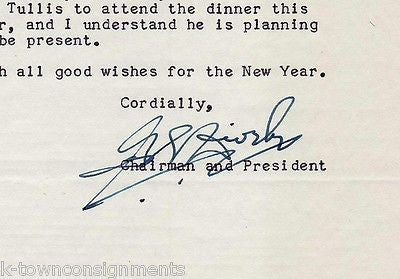 Tullis to attend the dinner this
r, and I understand he is planning
be present.
h all good wishes for the New Year.
Cordially,
Chairman and President
k-townconsignments